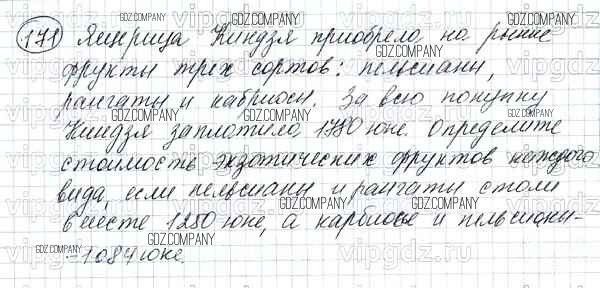 171 Ящерица Киндзя приобрела на рынке
фрукты трех сортов: пельсианы,
рангаты и кабриосы. За всю покупку
Киндзя заплатила 1730 юне. Определите
стоимость экзотических фруктов каждого
вида, если пельсианы и рангаты стоили
вместе 1250 юне, а карбиосы и пельсианы-
-1084 юне.